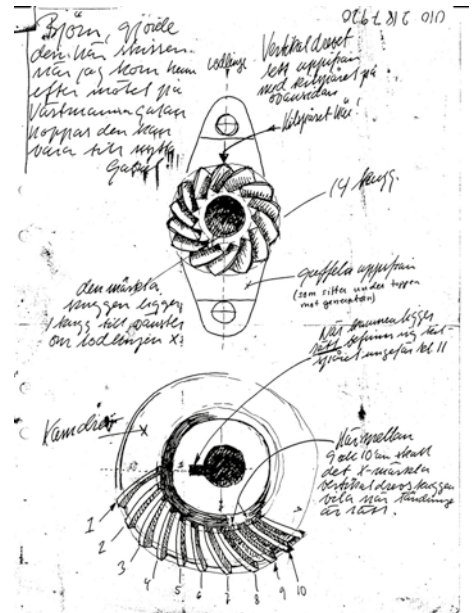 Björn, gjorde
den här skissen
när jag kom hem
efter mötet på
Västmannagatan
hoppas den kan
vara till nytta
010 218 7920
Lodlinje
Vertikaldrevet
sett uppifrån
med kilspåret på
ovansidan
Kilspåret här!
14 kugg.
den märkta
kuggen ligger
1 kugg till vänster
om lodlinjen X
gaffeln uppifrån
(som sitter under toppen
mot generatorn)
När kammen ligger
rätt befinner sig kil-
spåret ungefär kl 11
Kamdrev
X
Här mellan
9 och 10 an skall
det X-märkta
vertikaldrevskuggen
vila när tändningen
är rätt.
1
2
3
4
5
6
7
8
9
10